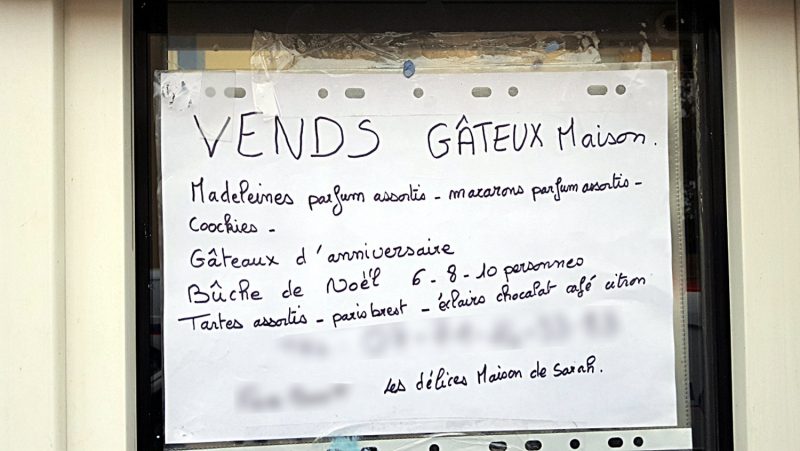 VENDS GÂTEUX Maison.
Madeleines parfum assortis - macarons parfum assortis -
Coockies -
Gâteaux d'anniversaire
Bûche de Noël 6 - 8 - 10 personnes
Tartes assortis - paris brest - éclairs chocalat café citron
Les délices Maison de Sarah.